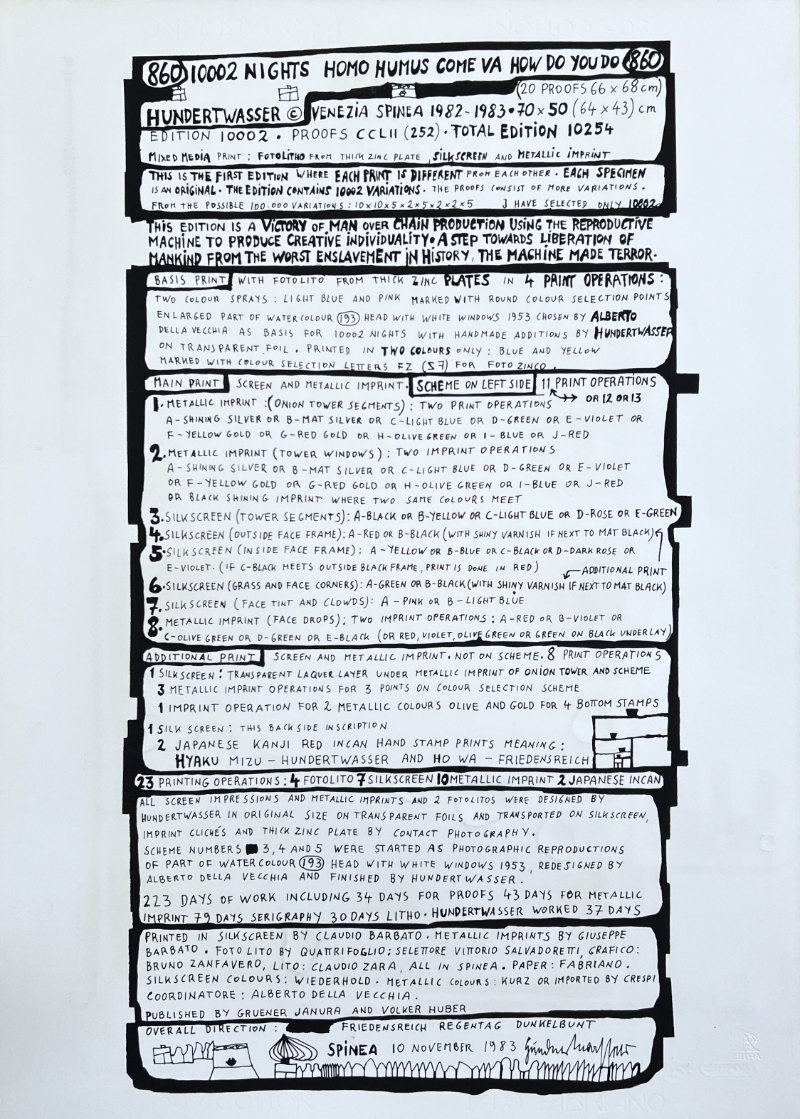 860 10002 NIGHTS HOMO HUMUS COME VA HOW DO YOU DO 860
(20 PROOFS 66 x 68 cm)
HUNDERTWASSER © VENEZIA SPINEA 1982-1983 • 70 x 50 (64 x 43) cm
EDITION 10002 • PROOFS CCLII (252) • TOTAL EDITION 10254
MIXED MEDIA PRINT : FOTOLITHO FROM THICK ZINC PLATE, SILKSCREEN AND METALLIC IMPRINT
THIS IS THE FIRST EDITION WHERE EACH PRINT IS DIFFERENT FROM EACH OTHER • EACH SPECIMEN
IS AN ORIGINAL • THE EDITION CONTAINS 10002 VARIATIONS • THE PROOFS CONSIST OF MORE VARIATIONS.
FROM THE POSSIBLE 100.000 VARIATIONS : 10x10x5x2x5x2x2x5 J HAVE SELECTED ONLY 10002
THIS EDITION IS A VICTORY OF MAN OVER CHAIN PRODUCTION USING THE REPRODUCTIVE
MACHINE TO PRODUCE CREATIVE INDIVIDUALITY • A STEP TOWARDS LIBERATION OF
MANKIND FROM THE WORST ENSLAVEMENT IN HISTORY, THE MACHINE MADE TERROR.
BASIS PRINT WITH FOTOLITO FROM THICK ZINC PLATES IN 4 PRINT OPERATIONS :
TWO COLOUR SPRAYS : LIGHT BLUE AND PINK MARKED WITH ROUND COLOUR SELECTION POINTS
ENLARGED PART OF WATERCOLOUR 193 HEAD WITH WHITE WINDOWS 1953 CHOSEN BY ALBERTO
DELLA VECCHIA AS BASIS FOR 10002 NIGHTS WITH HANDMADE ADDITIONS BY HUNDERTWASSER
ON TRANSPARENT FOIL. PRINTED IN TWO COLOURS ONLY : BLUE AND YELLOW
MARKED WITH COLOUR SELECTION LETTERS FZ (SZ) FOR FOTOZINCO.
MAIN PRINT SCREEN AND METALLIC IMPRINT. SCHEME ON LEFT SIDE 11 PRINT OPERATIONS
OR 12 OR 13
1. METALLIC IMPRINT : (ONION TOWER SEGMENTS) : TWO PRINT OPERATIONS
A-SHINING SILVER OR B-MAT SILVER OR C-LIGHT BLUE OR D-GREEN OR E-VIOLET OR
F-YELLOW GOLD OR G-RED GOLD OR H-OLIVE GREEN OR I-BLUE OR J-RED
2. METALLIC IMPRINT (TOWER WINDOWS) : TWO IMPRINT OPERATIONS
A-SHINING SILVER OR B-MAT SILVER OR C-LIGHT BLUE OR D-GREEN OR E-VIOLET
OR F-YELLOW GOLD OR G-RED GOLD OR H-OLIVE GREEN OR I-BLUE OR J-RED
OR BLACK SHINING IMPRINT WHERE TWO SAME COLOURS MEET
3. SILKSCREEN (TOWER SEGMENTS) : A-BLACK OR B-YELLOW OR C-LIGHT BLUE OR D-ROSE OR E-GREEN
4. SILKSCREEN (OUTSIDE FACE FRAME) : A-RED OR B-BLACK (WITH SHINY VARNISH IF NEXT TO MAT BLACK)
5. SILKSCREEN (INSIDE FACE FRAME) : A-YELLOW OR B-BLUE OR C-BLACK OR D-DARK ROSE OR
E-VIOLET. (IF C-BLACK MEETS OUTSIDE BLACK FRAME, PRINT IS DONE IN RED) ADDITIONAL PRINT
6. SILKSCREEN (GRASS AND FACE CORNERS) : A-GREEN OR B-BLACK (WITH SHINY VARNISH IF NEXT TO MAT BLACK)
7. SILKSCREEN (FACE TINT AND CLOWDS) : A-PINK OR B-LIGHT BLUE
8. METALLIC IMPRINT (FACE DROPS) ; TWO IMPRINT OPERATIONS : A-RED OR B-VIOLET OR
C-OLIVE GREEN OR D-GREEN OR E-BLACK (OR RED, VIOLET, OLIVE GREEN OR GREEN ON BLACK UNDERLAY)
ADDITIONAL PRINT SCREEN AND METALLIC IMPRINT. NOT ON SCHEME. 8 PRINT OPERATIONS
1 SILKSCREEN : TRANSPARENT LAQUER LAYER UNDER METALLIC IMPRINT OF ONION TOWER AND SCHEME
3 METALLIC IMPRINT OPERATIONS FOR 3 POINTS ON COLOUR SELECTION SCHEME
1 IMPRINT OPERATION FOR 2 METALLIC COLOURS OLIVE AND GOLD FOR 4 BOTTOM STAMPS
1 SILK SCREEN : THIS BACK SIDE INSCRIPTION
2 JAPANESE KANJI RED INCAN HAND STAMP PRINTS MEANING :
HYAKU MIZU - HUNDERTWASSER AND HO WA - FRIEDENSREICH
23 PRINTING OPERATIONS : 4 FOTOLITO 7 SILKSCREEN 10 METALLIC IMPRINT 2 JAPANESE INCAN
ALL SCREEN IMPRESSIONS AND METALLIC IMPRINTS AND 2 FOTOLITOS WERE DESIGNED BY
HUNDERTWASSER IN ORIGINAL SIZE ON TRANSPARENT FOILS AND TRANSPORTED ON SILKSCREEN,
IMPRINT CLICHÉS AND THICK ZINC PLATE BY CONTACT PHOTOGRAPHY.
SCHEME NUMBERS 3, 4 AND 5 WERE STARTED AS PHOTOGRAPHIC REPRODUCTIONS
OF PART OF WATERCOLOUR 193 HEAD WITH WHITE WINDOWS 1953, REDESIGNED BY
ALBERTO DELLA VECCHIA AND FINISHED BY HUNDERTWASSER.
223 DAYS OF WORK INCLUDING 34 DAYS FOR PROOFS 43 DAYS FOR METALLIC
IMPRINT 79 DAYS SERIGRAPHY 30 DAYS LITHO • HUNDERTWASSER WORKED 37 DAYS
PRINTED IN SILKSCREEN BY CLAUDIO BARBATO. METALLIC IMPRINTS BY GIUSEPPE
BARBATO. FOTOLITO BY QUATTRIFOGLIO ; SELETTORE VITTORIO SALVADORETTI, GRAFICO :
BRUNO ZANFAVERO, LITO : CLAUDIO ZARA, ALL IN SPINEA. PAPER : FABRIANO.
SILKSCREEN COLOURS : WIEDERHOLD. METALLIC COLOURS : KURZ OR IMPORTED BY CRESPI
COORDINATORE : ALBERTO DELLA VECCHIA.
PUBLISHED BY GRUENER JANURA AND VOLKER HUBER
OVERALL DIRECTION : FRIEDENSREICH REGENTAG DUNKELBUNT
SPINEA 10 NOVEMBER 1983